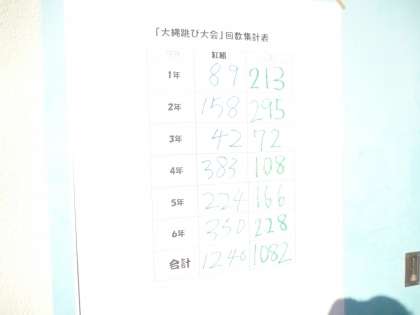 「大縄跳び大会」回数集計表
紅組
1年 89 213
2年 158 295
3年 42 72
4年 383 108
5年 224 166
6年 350 228
合計 1246 1082